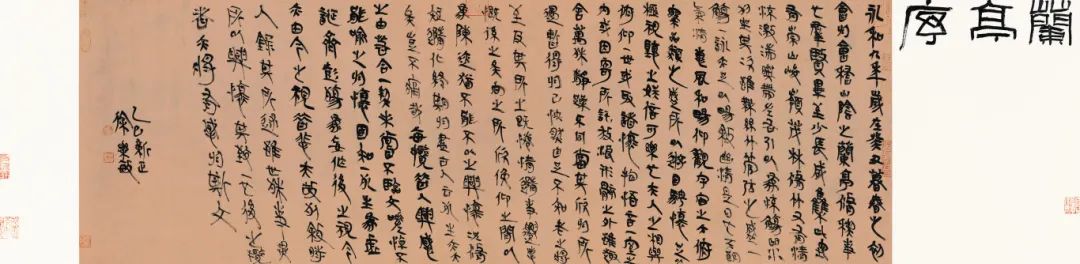 蘭亭序
永和九年歲在癸丑暮春之初
會於會稽山陰之蘭亭脩稧事
也群賢畢至少長咸集此地
有崇山峻領茂林脩竹又有清
流激湍映帶左右引以為流觴曲水
列坐其次雖無絲竹管弦之盛一
觴一詠亦足以暢敘幽情是日也天朗
氣清惠風和暢仰觀宇宙之大俯
察品類之盛所以遊目騁懷足以
極視聽之娛信可樂也夫人之相與
俯仰一世或取諸懷抱悟言一室之
內或因寄所託放浪形骸之外雖趣
舍萬殊靜躁不同當其欣於所
遇暫得於己快然自足不知老之將
至及其所之既惓情隨事遷感
慨係之矣向之所欣俛仰之間以
為陳迹猶不能不以之興懷況脩
短隨化終期於盡古人云死生亦大
矣豈不痛哉每攬昔人興感
之由若合一契未嘗不臨文嗟悼不
能喻之於懷固知一死生為虛
誕齊彭殤為妄作後之視今
亦由今之視昔悲夫故列敘時
人錄其所述雖世殊事異
所以興懷其致一也後之覽
者亦將有感於斯文
乙巳新正
徐